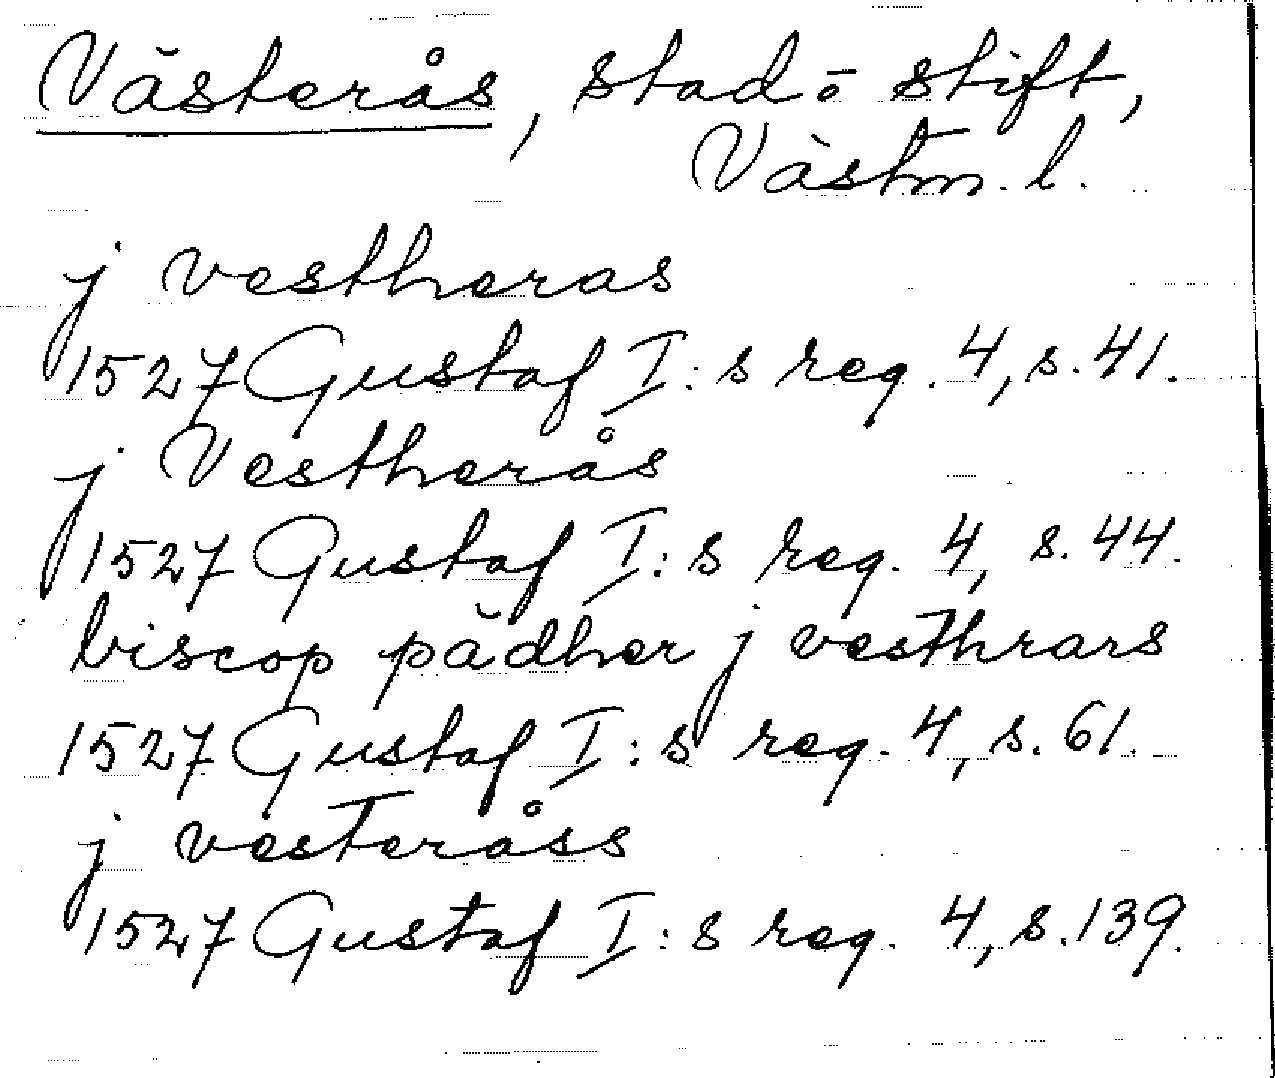 Västerås, stad o stift,
Västm. l.
j vestheras
1527 Gustaf I:s reg. 4, s. 41.
j Vestherås
1527 Gustaf I:s reg. 4, s. 44.
biscop pädher j vesthrars
1527 Gustaf I:s reg. 4, s. 61.
j vesteråss
1527 Gustaf I:s reg. 4, s. 139.